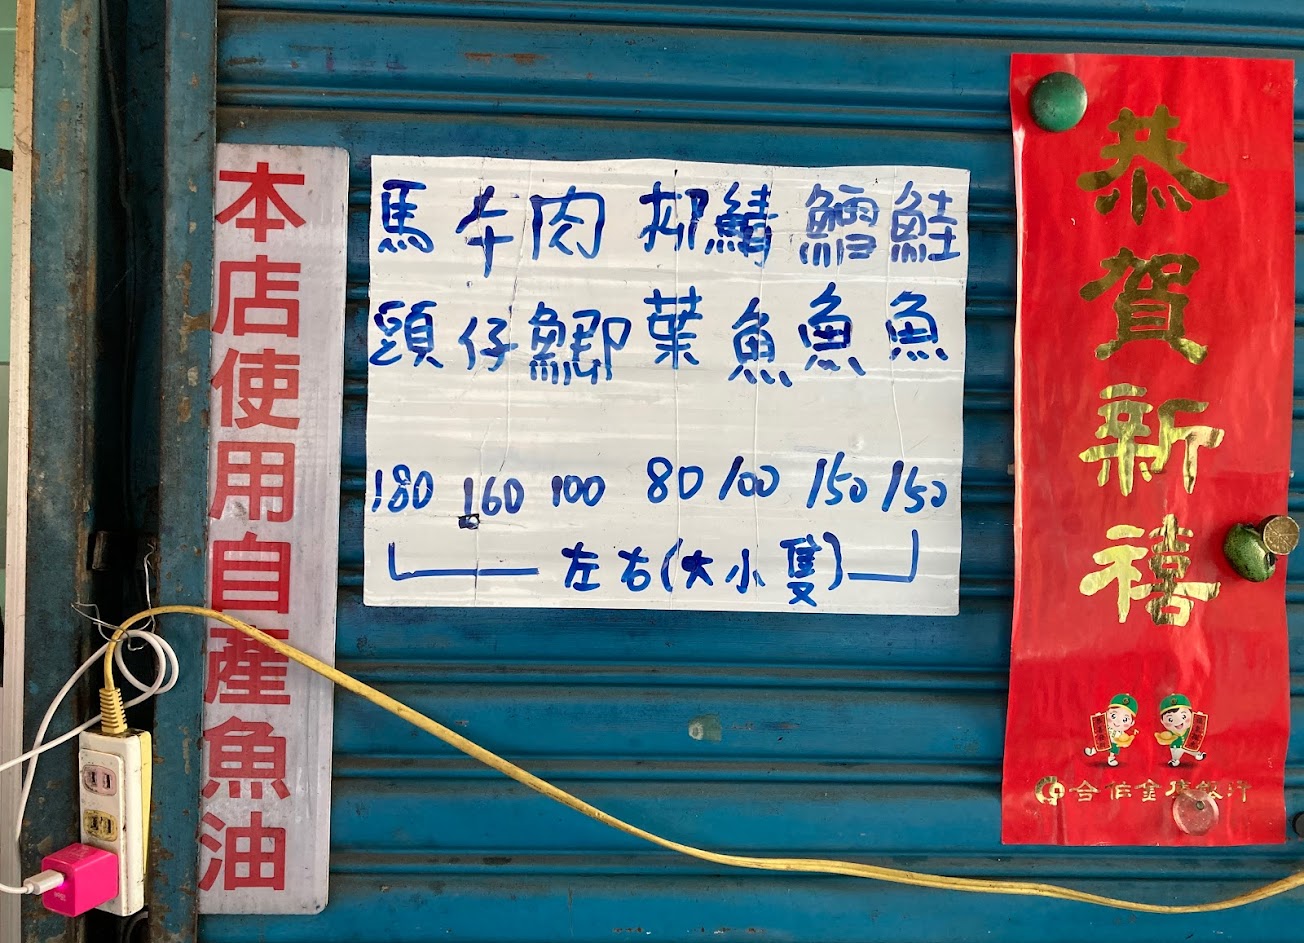 恭賀新禧
合作金庫銀行
鮭魚 150
鱈魚 150
鯖魚 100
柳葉 80
肉鯽 100
午仔 160
馬頭 180
左右(大小隻)
本店使用自產魚油